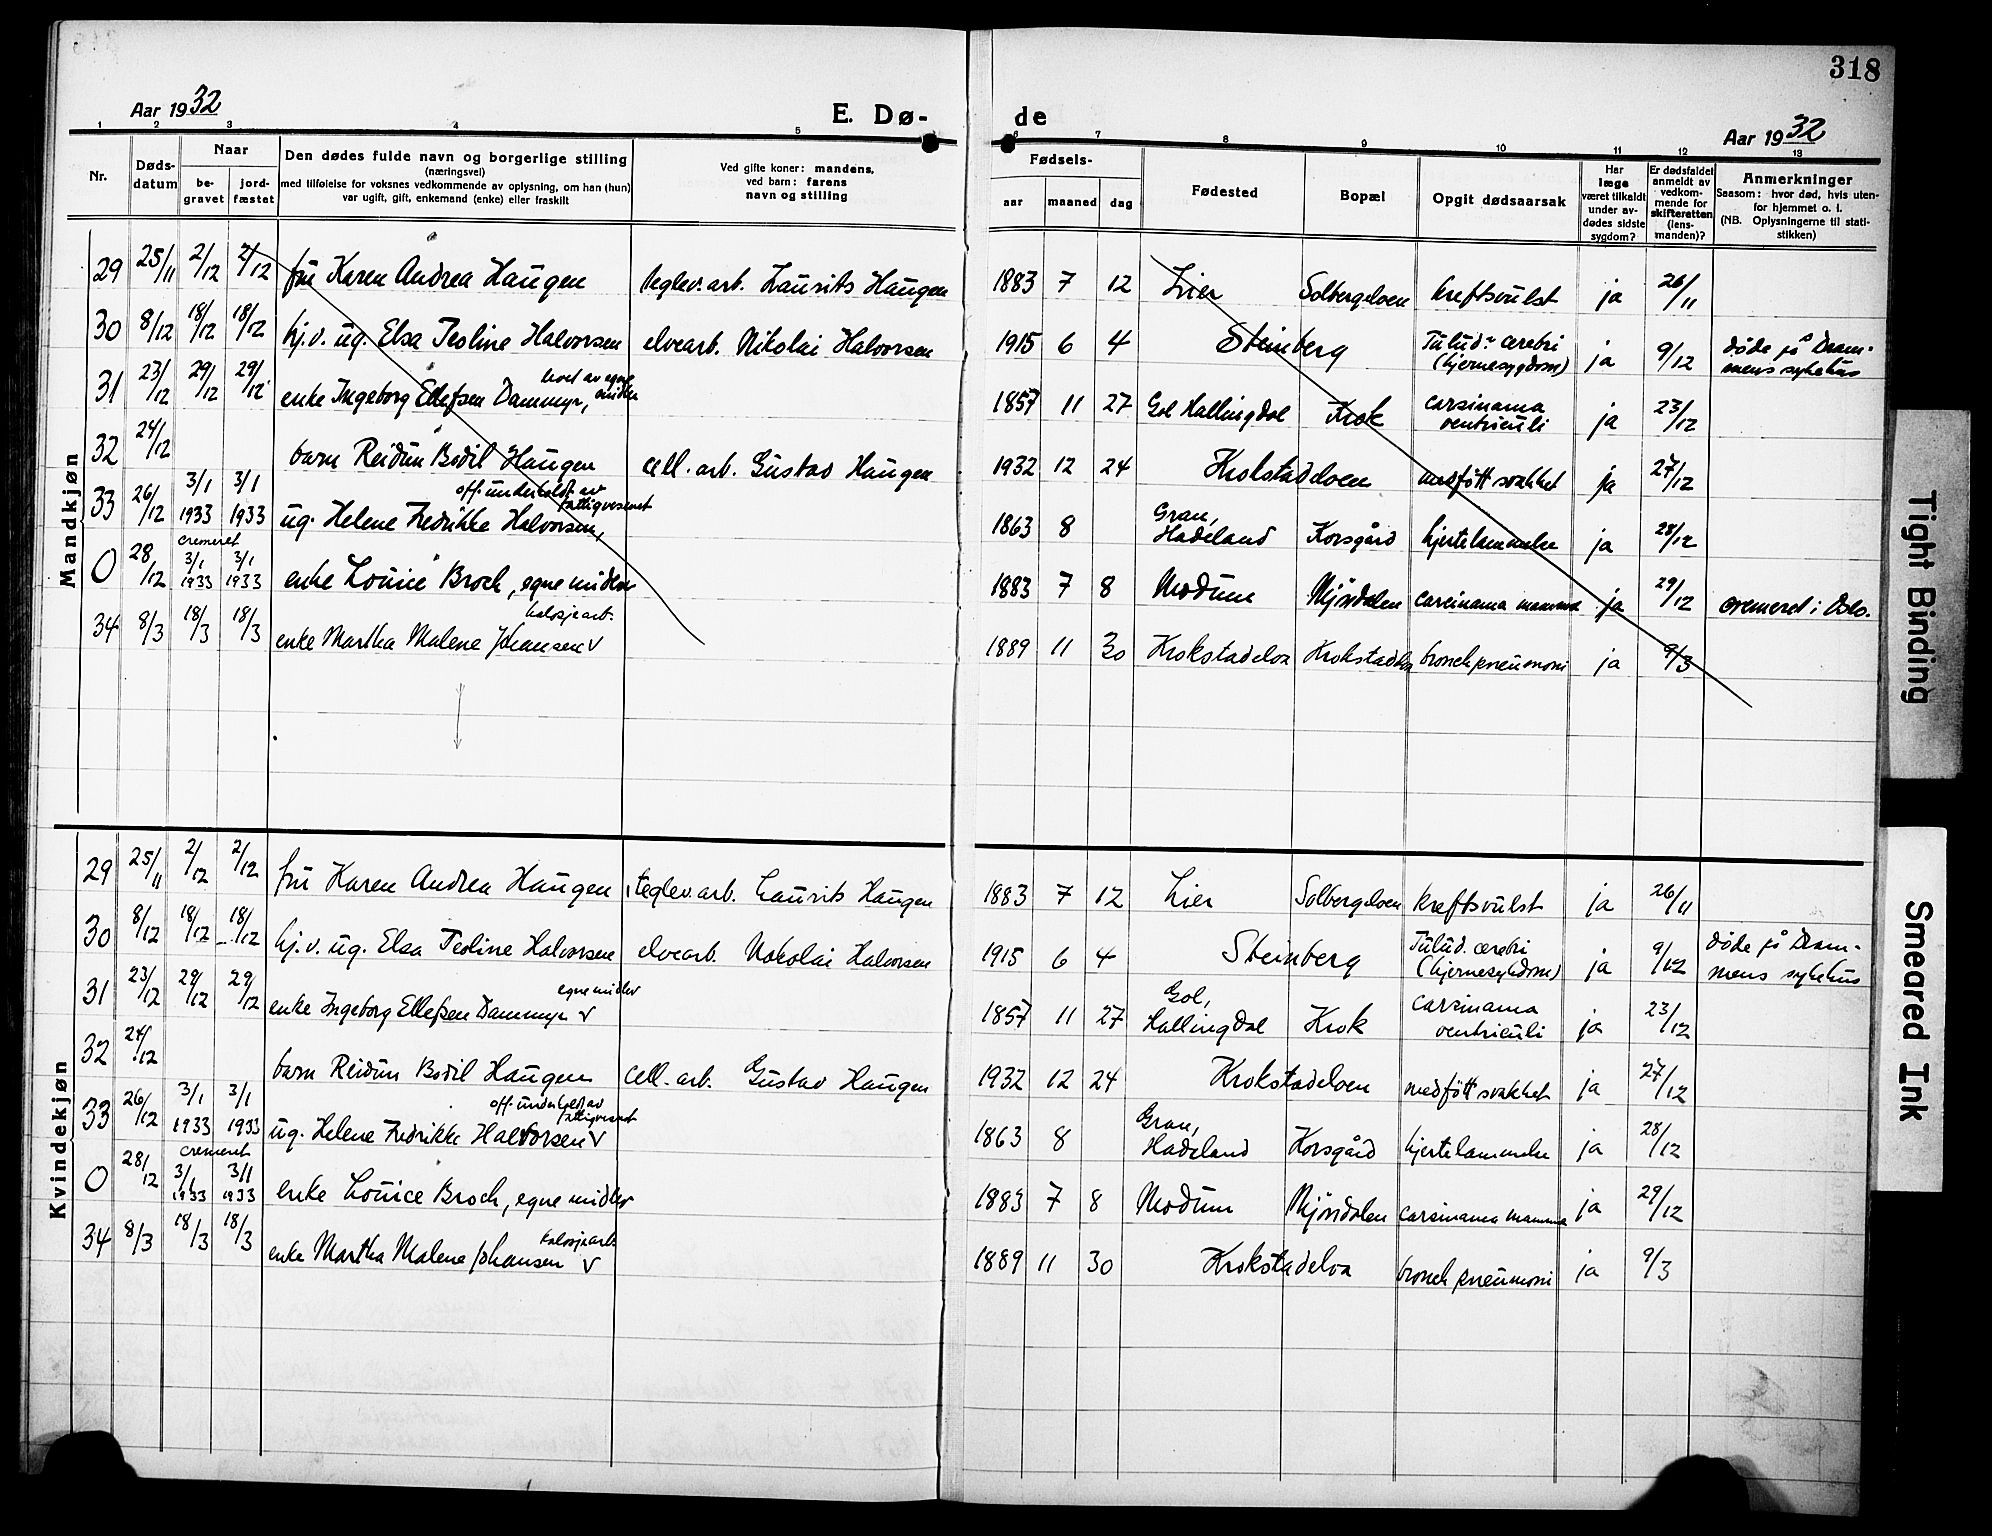 318
Aar 1932
E. Dø-
de
Aar 1932
1 2 3 4 5 6 7 8 9 10 11 12 13
Nr.
Døds-
datum
Naar
be-
gravet
jord-
fæstet
Den dødes fulde navn og borgerlige stilling
(næringsvei)
med tilføielse for voksnes vedkommende av oplysning, om han (hun)
var ugift, gift, enkemand (enke) eller fraskilt
Ved gifte koner: mandens,
ved barn: farens
navn og stilling
Fødsels-
aar maaned dag
Fødested
Bopæl
Opgit dødsaarsak
Har
læge
været tilkaldt
under av-
dødes sidste
sygdom?
Er dødsfaldet
anmeldt av
vedkom-
mende for
skifteretten
(lens-
manden)?
Anmerkninger
Saasom: hvor død, hvis uten-
for hjemmet o. l.
(NB. Oplysningerne til stati-
stikken)
Mandkjøn
29 25/11 2/12 2/12 fru Karen Andrea Haugen teglev.arb. Laurits Haugen 1883 7 12 Lier Solbergelven kreftsvulst ja 26/11
30 8/12 18/12 18/12 hj.v. ug. Elsa Teoline Halvorsen elvearb. Nikolai Halvorsen 1915 6 4 Steinberg cerebri (hjernesygdom) ja 9/12 døde på Dram-
mens sykehus
31 23/12 29/12 29/12 enke Ingeborg Ellefsen Dammyr, levet av egne midler 1857 11 27 Gol Hallingdal Krok carsinama ventriculi ja 23/12
32 24/12 barn Reidun Bodil Haugen cell. arb. Gustav Haugen 1932 12 24 Krokstadelven medfött svakhet ja 27/12
33 26/12 3/1 1933 3/1 1933 ug. Helene Fredrikke Halvorsen, off. underholdt av fattigvesenet 1863 8 Gran, Hadeland Korsgård hjertelammelse ja 28/12
0 28/12 cremeret 3/1 1933 3/1 1933 enke Louice Broch, egne midler 1883 7 8 Modum Mjöndalen carcinama mamma ja 29/12 cremeret i Oslo.
34 8/3 18/3 18/3 enke Martha Malene Johansen v 1889 11 30 Krokstadelva Krokstadelva bronch pneumoni ja 9/3
Kvindekjøn
29 25/11 2/12 2/12 fru Karen Andrea Haugen teglev.arb. Laurits Haugen 1883 7 12 Lier Solbergelven kreftsvulst ja 26/11
30 8/12 18/12 18/12 hj.v. ug. Elsa Teoline Halvorsen elvearb. Nokolai Halvorsen 1915 6 4 Steinberg cerebri (hjernesykdom) ja 9/12 døde på Dram-
mens sykehus
31 23/12 29/12 29/12 enke Ingeborg Ellefsen Dammyr v egne midler 1857 11 27 Gol, Hallingdal Krok carsinama ventriculi ja 23/12
32 24/12 barn Reidun Bodil Haugen cell. arb. Gustav Haugen 1932 12 24 Krokstadelven medfött svakhet ja 27/12
33 26/12 3/1 1933 3/1 1933 ug. Helene Fredrikke Halvorsen v off. underholdt av fattigvesenet 1863 8 Gran, Hadeland Korsgård hjertelammelse ja 28/12
0 28/12 cremeret 3/1 1933 3/1 1933 enke Louice Broch, egne midler 1883 7 8 Modum Mjöndalen carsinama mamma ja 29/12
34 8/3 18/3 18/3 enke Martha Malene Johansen v 1889 11 30 Krokstadelva bronch pneumoni ja 9/3
Tight Binding
Smeared Ink